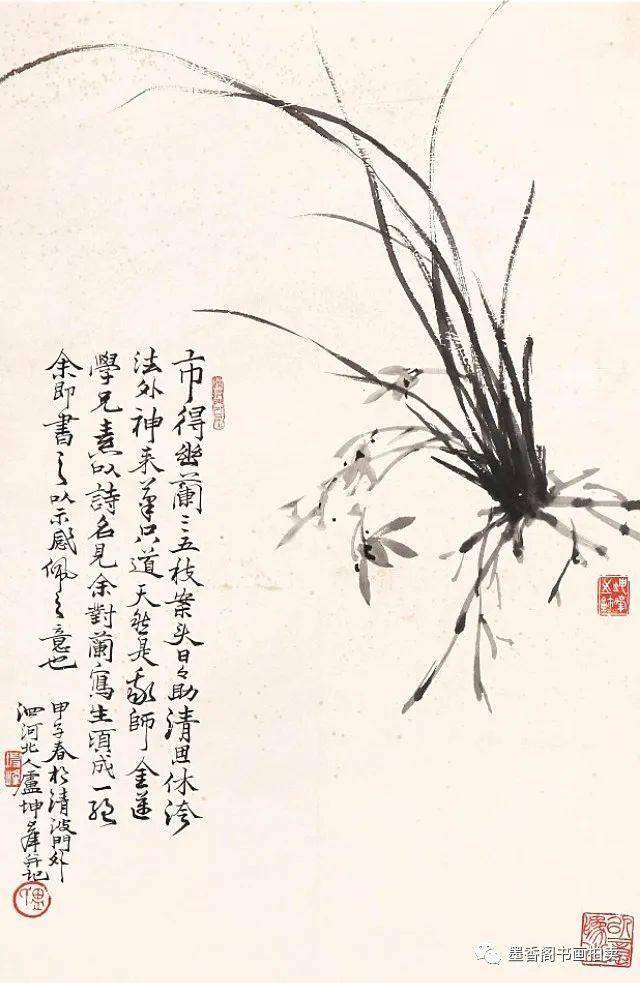 市得幽蘭三五枝案头日々助清思休誇
法外神来筆只道天然是我師 金蓮
學兄素以詩名見余對蘭寫生頃成一絕
余即書之以示感佩之意也
甲子春於清波門外
泗河北人盧坤峰并記
墨香阁书画拍卖